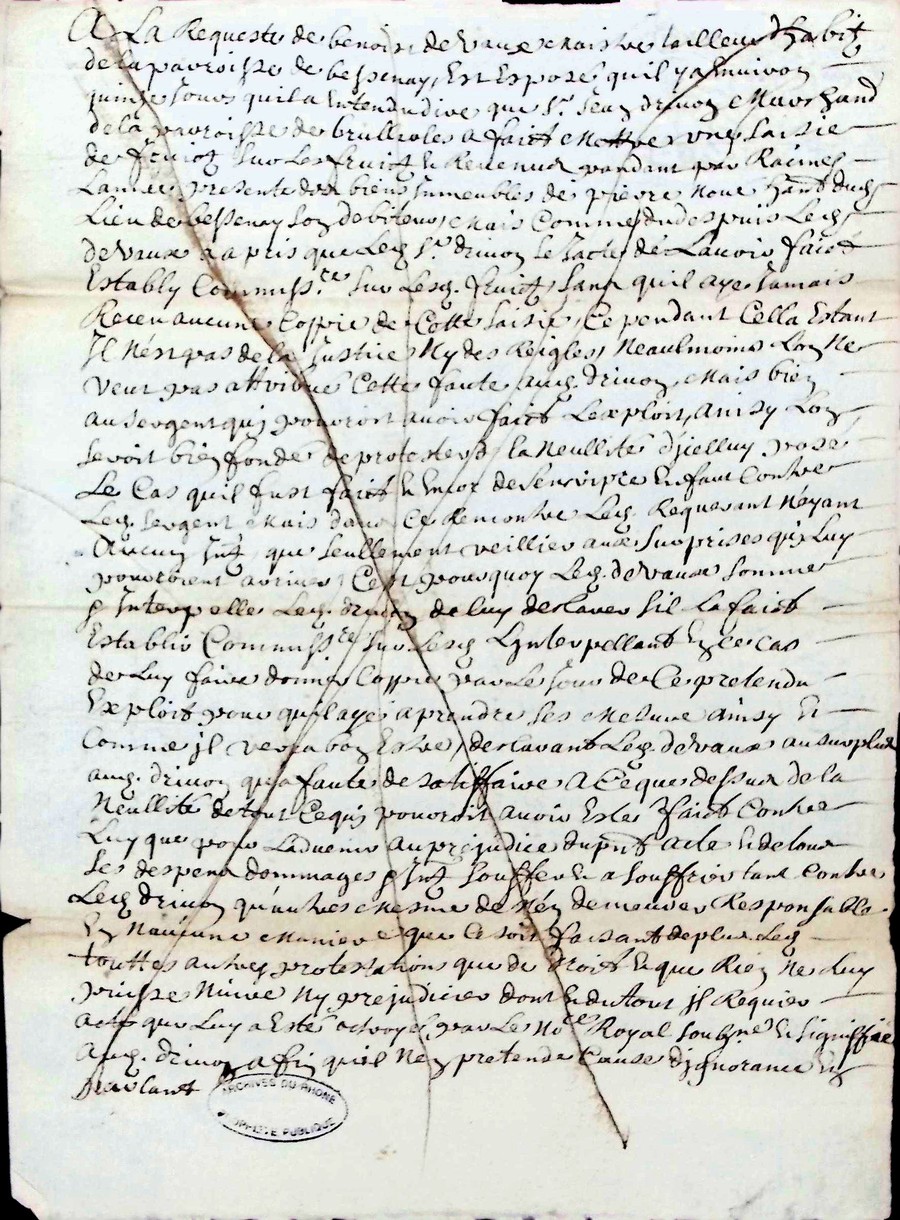 A La Requeste de benoist devaux maistre tailleur d'habitz
de la parroisse de bessenay, Est Exposé quil y a Environ
quinze Jours quil a Entendu dire que Sr. Jean drivon Marchand
de la parroisse de brullioles a faict mettre une saisie
de fruictz sur Les fruictz & Revenus pendant par Racines
Lannée presente des biens Immeubles de pierre
Lieu de bessenay son debiteur, mais Comme du despuis Ledt.
devaux a apris que Led. Sr. drivon le Jacte de Lavoir faict
Estably Commissre. sur Lesd. fruictz sans quil aye Jamais
Receu aucune Coppie de Cette saisie, Cependant Cella Estant
Il n'est pas de la Justice Ny des Reigles, Neaulmoins Lon Ne
veut pas attribué Cette faute aud. drivon, mais bien
au sergent qui pourroit avoir faict Lexploit, ainsy Lon
seroit bien fondé de protester de la Neullité d'jcelluy posé
Le Cas quil fust faict & Encor de Sinscripre En faux Contre
Led. sergent mais dans Ce Rencontre Led. Requerant N'ayant
Aucun Intt. que seullement veillier aux surprises qui Luy
pourroient arriver, C'est pourquoy Led. devaux somme
& Interpelle Led. drivon de luy declarer sil La faict
Establir Commissre sur Lesd. & Linterpellant En ce cas
de Luy faire donner Coppie par Le Jour de Ce pretendu
Exploit pour quil aye a prendre ses mesure ainsy &
Comme jl verra bon Estre, declarant Led. devaux au surplus
aud. drivon qu'a faute de satiffaire a Ce que dessus de la
Neullité de tout Ce qui pourroit avoir Esté faict Contre
Luy que pour Ladvenir au prejudice du pnt acte & de tous
ses despens dommages & Intt. souffert & a souffrir tant Contre
Led. drivon qu'autres mesme de N'en demeurer Responsable
En N'aucune maniere que Ce soit faisant de plus Led.
touttes autres protestations que de droit & que Rien Ne Luy
puisse Nuire Ny prejudicier dont & du tout jl Requiert
acte que Luy a Esté octroyé par Le Nore Royal soubzne. & signiffié
Aud. drivon affin quil N'en pretende Cause d'jgnorance En
parlant
ARCHIVES DU RHONE
PROPRIÉTÉ PUBLIQUE